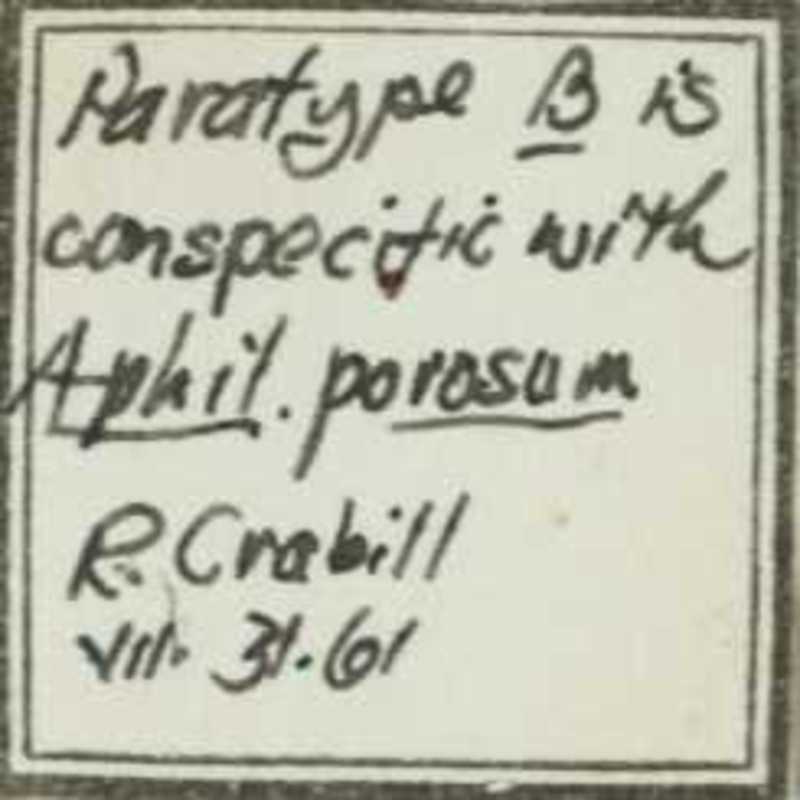 Paratype B is
conspecific with
Aphil. porosum
R. Crabill
VII. 31. 61